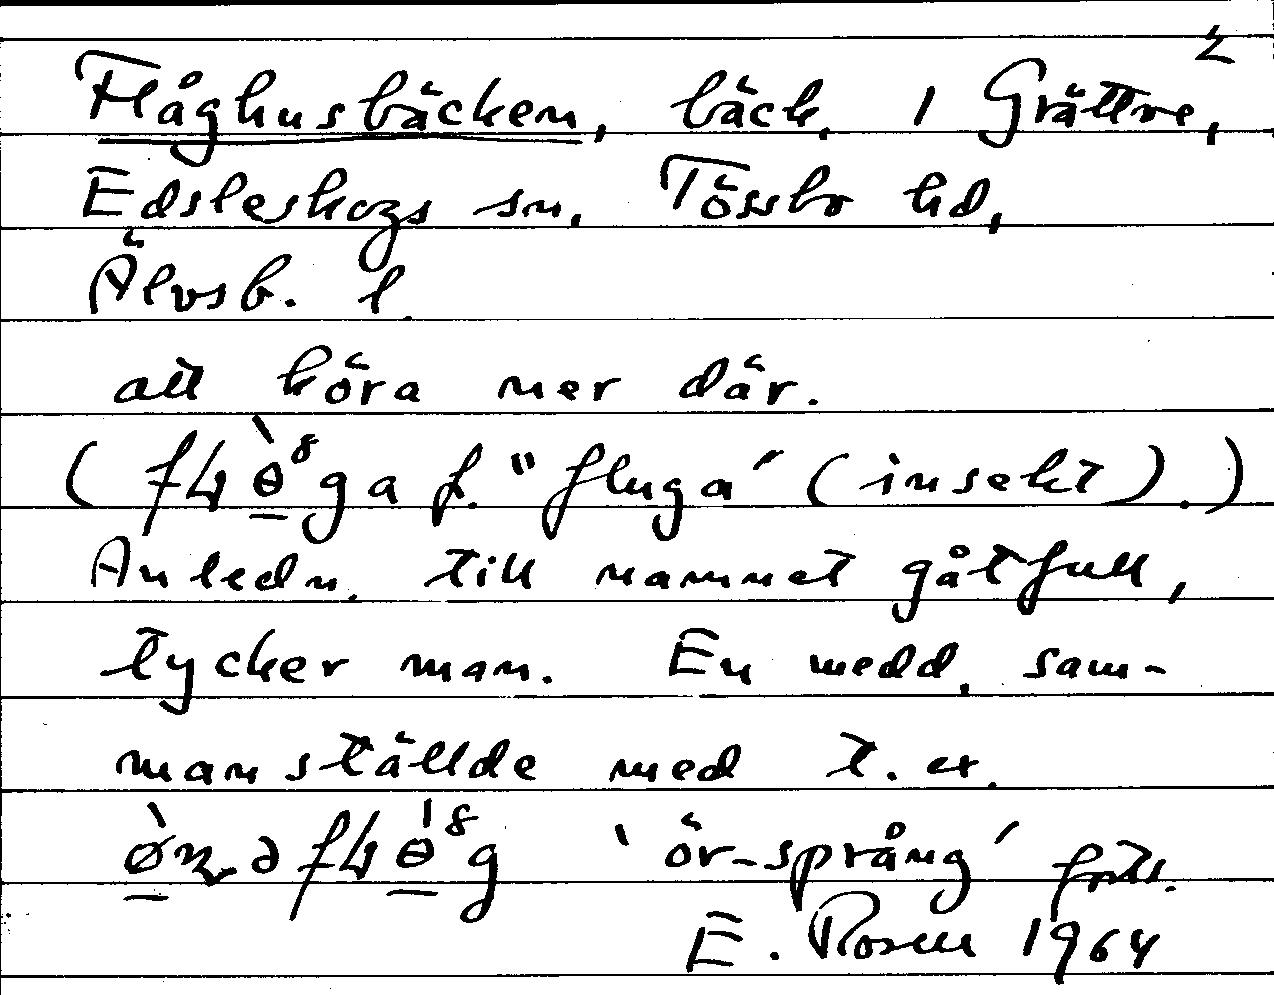 2
Flåghusbäcken, bäck, i Grättve,
Edsleskogs sn, Tössbo hd,
Älvsb. l.
att höra mer där.
( fɬɵ̀ga f. "fluga" (insekt).)
Anledn. till namnet gåtfull,
tycker man. En medd. sam-
manställde med t. ex.
'ör-språng' forts.
E. Rosell 1964